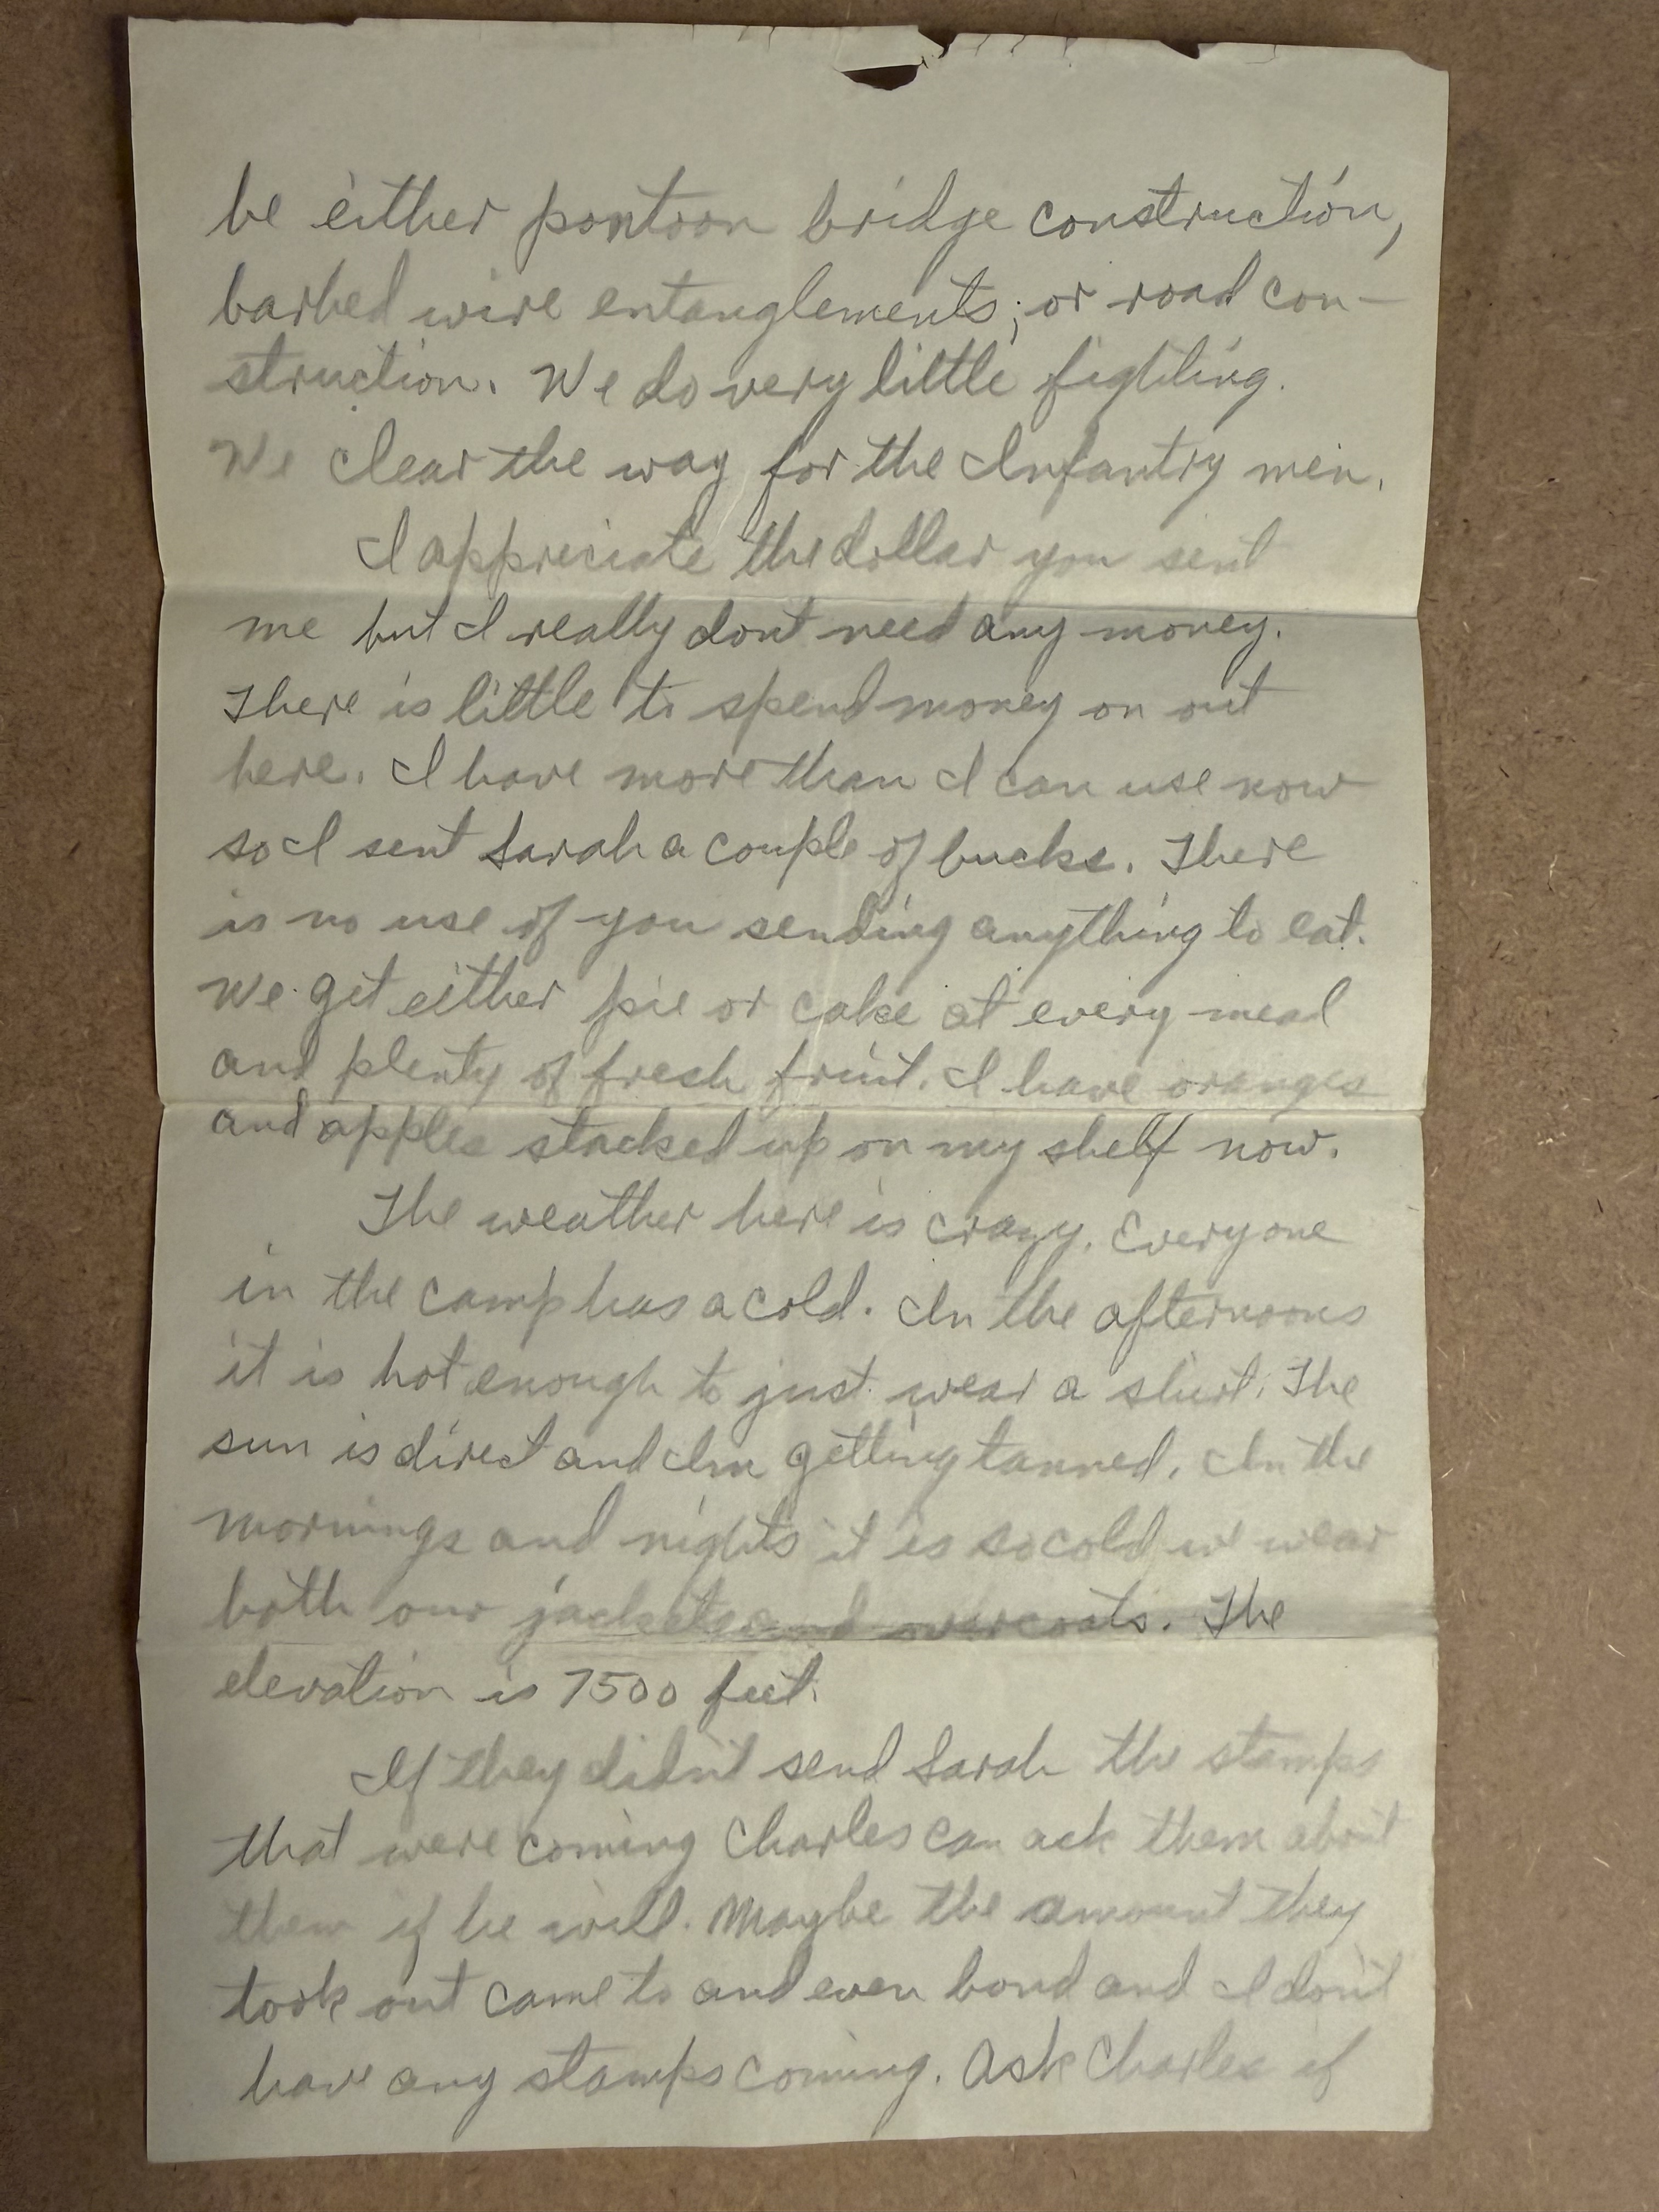 be either pontoon bridge construction,
barbed wire entanglements; or road con-
struction. We do very little fighting.
We clear the way for the Infantry men.
I appreciate the dollar you sent
me but I really dont need any money.
There is little to spend money on out
here. I have more than I can use now
so I sent Sarah a couple of bucks. There
is no use of you sending anything to eat.
We get either pie or cake at every meal
and plenty of fresh fruit. I have oranges
and apples stacked up on my shelf now.
The weather here is crazy. Everyone
in the camp has a cold. In the afternoons
it is hot enough to just wear a shirt. The
sun is direct and Im getting tanned. In the
mornings and nights it is so cold we wear
both our jackets and overcoats. The
elevation is 7500 feet.
If they didn't send Sarah the stamps
that were coming Charles can ask them about
them if he will. Maybe the amount they
took out came to and even bond and I don't
have any stamps coming. Ask Charles if